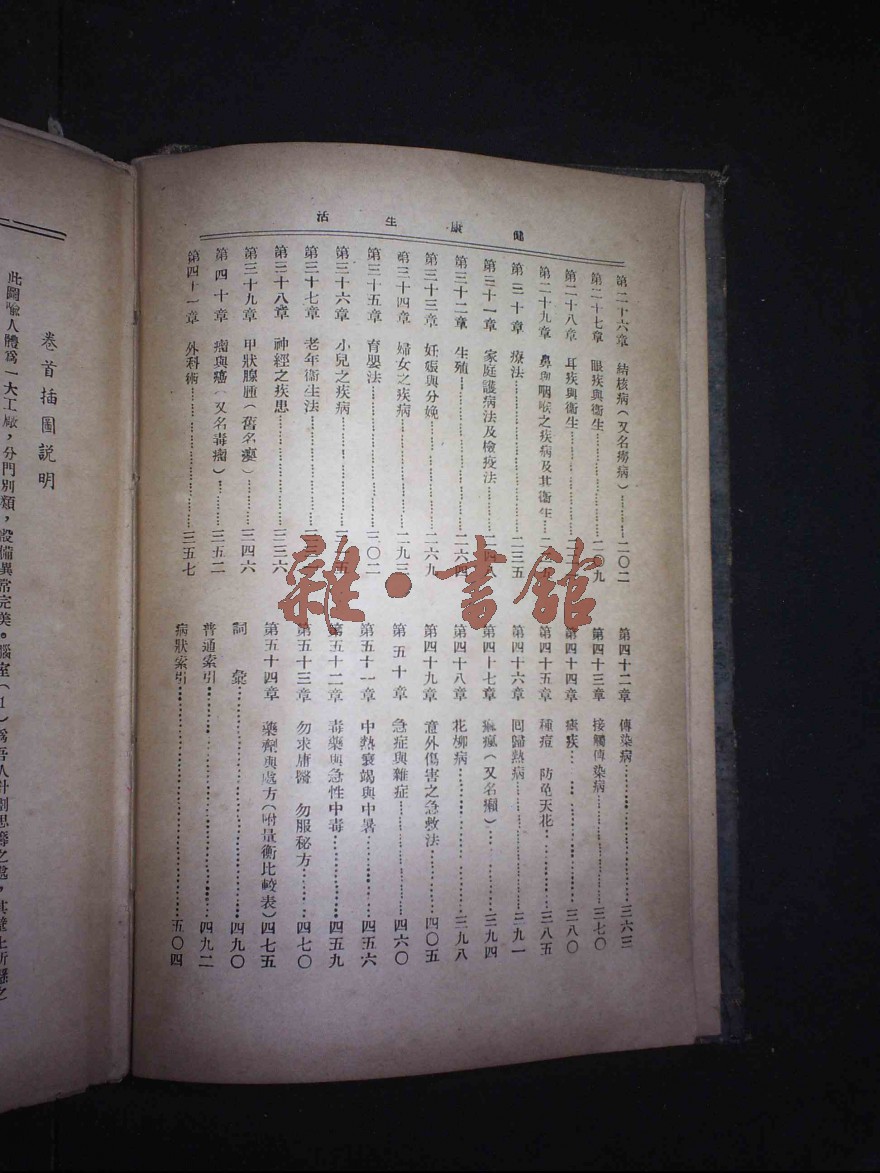 健康生活
第二十六章 結核病（又名癆病）…………二〇二
第二十七章 眼疾與衞生…………二〇九
第二十八章 耳疾與衞生…………二
第二十九章 鼻與咽喉之疾病及其衞生…………二
第三十章 療法…………二三五
第三十一章 家庭護病法及檢疫法…………二四八
第三十二章 生殖…………二六四
第三十三章 妊娠與分娩…………二六九
第三十四章 婦女之疾病…………二九三
第三十五章 育嬰法…………三〇二
第三十六章 小兒之疾病…………三
第三十七章 老年衞生法…………三
第三十八章 神經之疾患…………三三六
第三十九章 甲狀腺腫（舊名癭）…………三四六
第四十章 瘤與癌（又名毒瘤）…………三五二
第四十一章 外科術…………三五七
第四十二章 傳染病…………三六三
第四十三章 接觸傳染病…………三七〇
第四十四章 瘧疾…………三八〇
第四十五章 種痘 防免天花…………三八五
第四十六章 回歸熱病…………三九一
第四十七章 痲瘋（又名癩）…………三九四
第四十八章 花柳病…………三九八
第四十九章 意外傷害之急救法…………四〇五
第五十章 急症與雜症…………四六〇
第五十一章 中熱衰竭與中暑…………四五六
第五十二章 毒藥與急性中毒…………四五九
第五十三章 勿求庸醫 勿服秘方…………四七〇
第五十四章 藥劑與處方（附量衡比較表）四七五
詞彙…………四九〇
普通索引…………四九二
病狀索引…………五〇四
卷首插圖說明
此圖喻人體爲一大工廠，分門別類，設備異常完美。腦室（1）爲吾人計劃思籌之處，其壁上所懸之
雜·書館